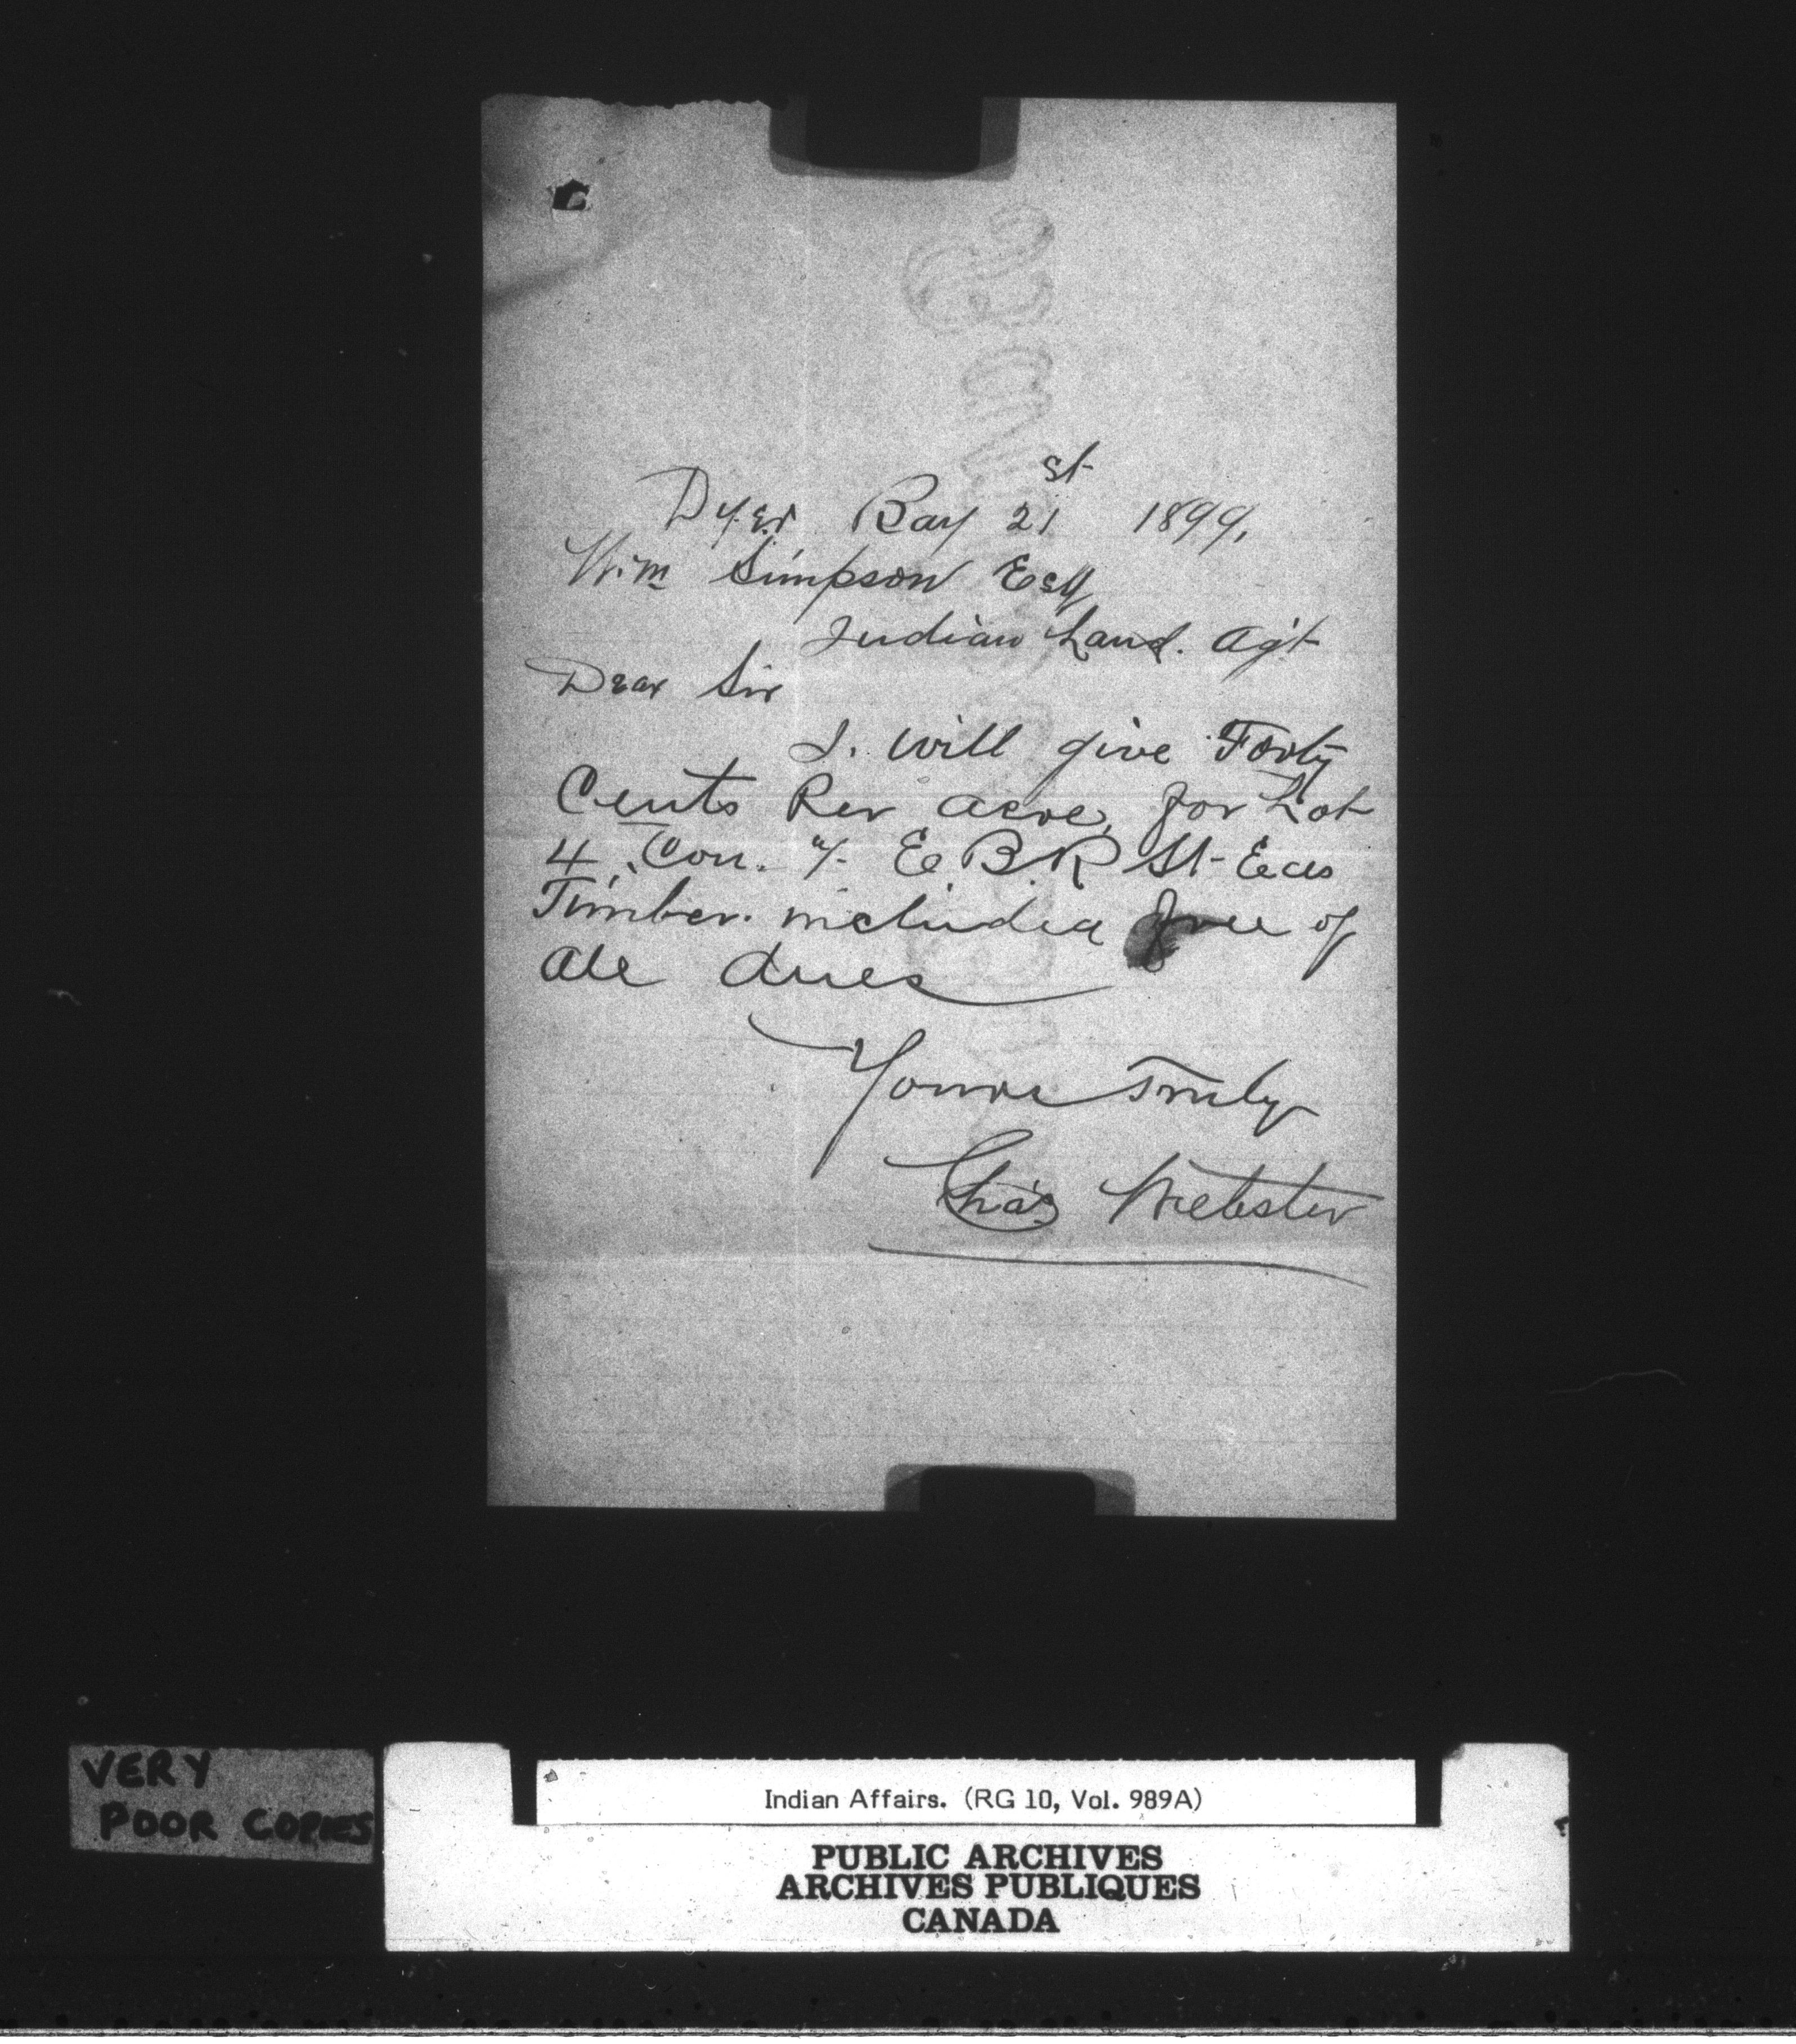 Dyer Bay 21st 1899,
Wm Simpson Esq
Indian Land. Agt
Dear Sir
I. will give Forty
Cents Per acre, for Lot
4, Con. 7. E B.R St Eds
Timber. included free of
all dues
Yours Truly
Chas Webster
VERY
POOR COPIES
Indian Affairs. (RG 10, Vol. 989A)
PUBLIC ARCHIVES
ARCHIVES PUBLIQUES
CANADA